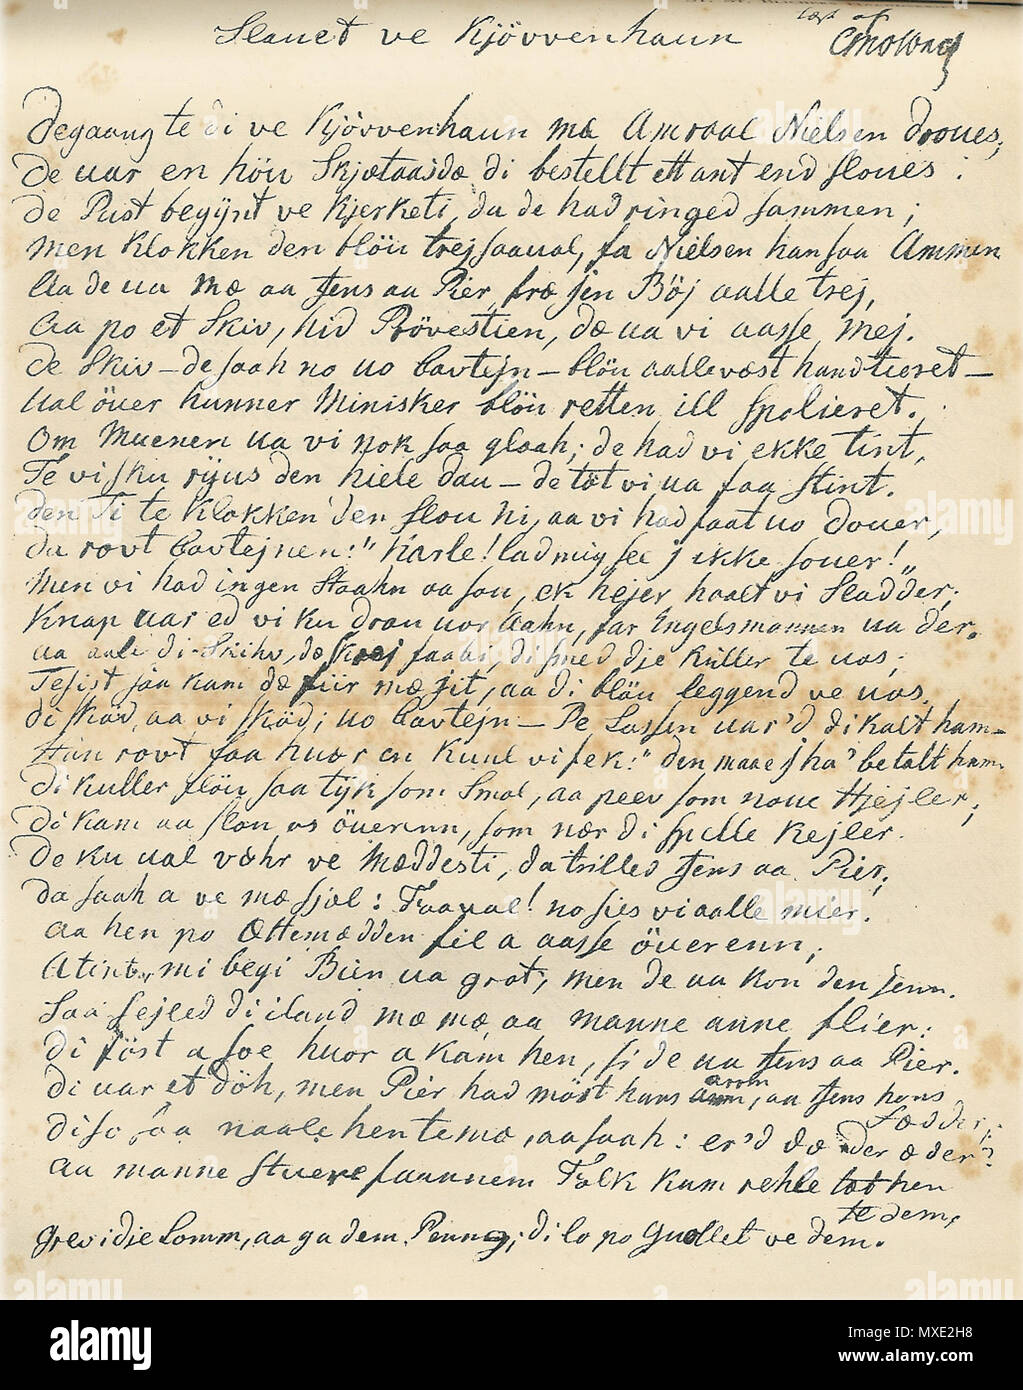 Slauet ve Kjövvenhaun
læst af
CMolbech
Degaang te di ve Kjövvenhaun mæ Amraal Nielsen droues,
De uar en höu Skjætaasdæ di bestellt ett ant end sloues:
De Pust begÿnt ve Kjerketi, da de had ringed sammen;
men Klokken den blöu trej saaual, fa Nielsen han saa Ammen
Aa de ua mæ aa Jens aa Pier, fræ jen Böj aalle trej,
aa po et Skiv, hid Prövestien, dæ ua vi aasse mej.
De Skiv – de saah no uo Cavtejn – blöu aallevæst handtieret –
Ual öuer hunner Minisker blöu retten ill spolieret.
Om Muenen ua vi nok saa gloah; de had vi ekke tint,
Te vi sku rÿus den hiele dau – de tot vi ua faa stint.
den Ti te Klokken den slou ni, aa vi had faat uo Douer,
da rovt Cavtejnen: "Karle! lad mig see j ikke souer!"
Men vi had ingen Staahn aa sou, ek hejer haalt vi Sladder;
Knap uar ed vi ku drau uor Aahn, far Engelsmannen ua der.
aa aale di Skihv, dæ skrej faabi, di smed dje kuller te uos;
Tesist saa kam dæ fiir mæ jit, aa di blöu leggend ve uos.
di sköd, aa vi sköd; uo Cavtejn – Pe Lassen uar'd di kalt ham –
Han rovt faa huor en Kuul vi fek: "den maae j ha' betalt ham
Di kuller flöu saa tÿk som Smal, aa peev som naue Hjejler;
di kam aa slou os öuerenn, som nær di spelle Kejler.
De ku ual vähr ve Mæddesti, da trilled Jens aa Pier;
da saah a ve mæ sjæl: Faaual! no sies vi aalle mier.
Aa hen po Ættemædden fil a aasse öuerenn;
A tint, mi begi Bien ua grot, men de ua kon den jenn.
Saa sejled di i land mæ mæ, aa manne anne flier:
di föst a soe huor a kam hen, si de ua Jens aa Pier.
Di uar et döh, men Pier had möst hans arm, aa Jens hans
aarm
Fædder;
di so faa naale hen te mæ, aa saah: er'd dæ der æ der?
aa manne stuere faunnem Folk kam rehle tot hen
te dem,
grev i dje Lomm, aa ga dem Penng; di lo po Guollet ve dem.
alamy
Image ID: MXE2H8
www.alamy.com